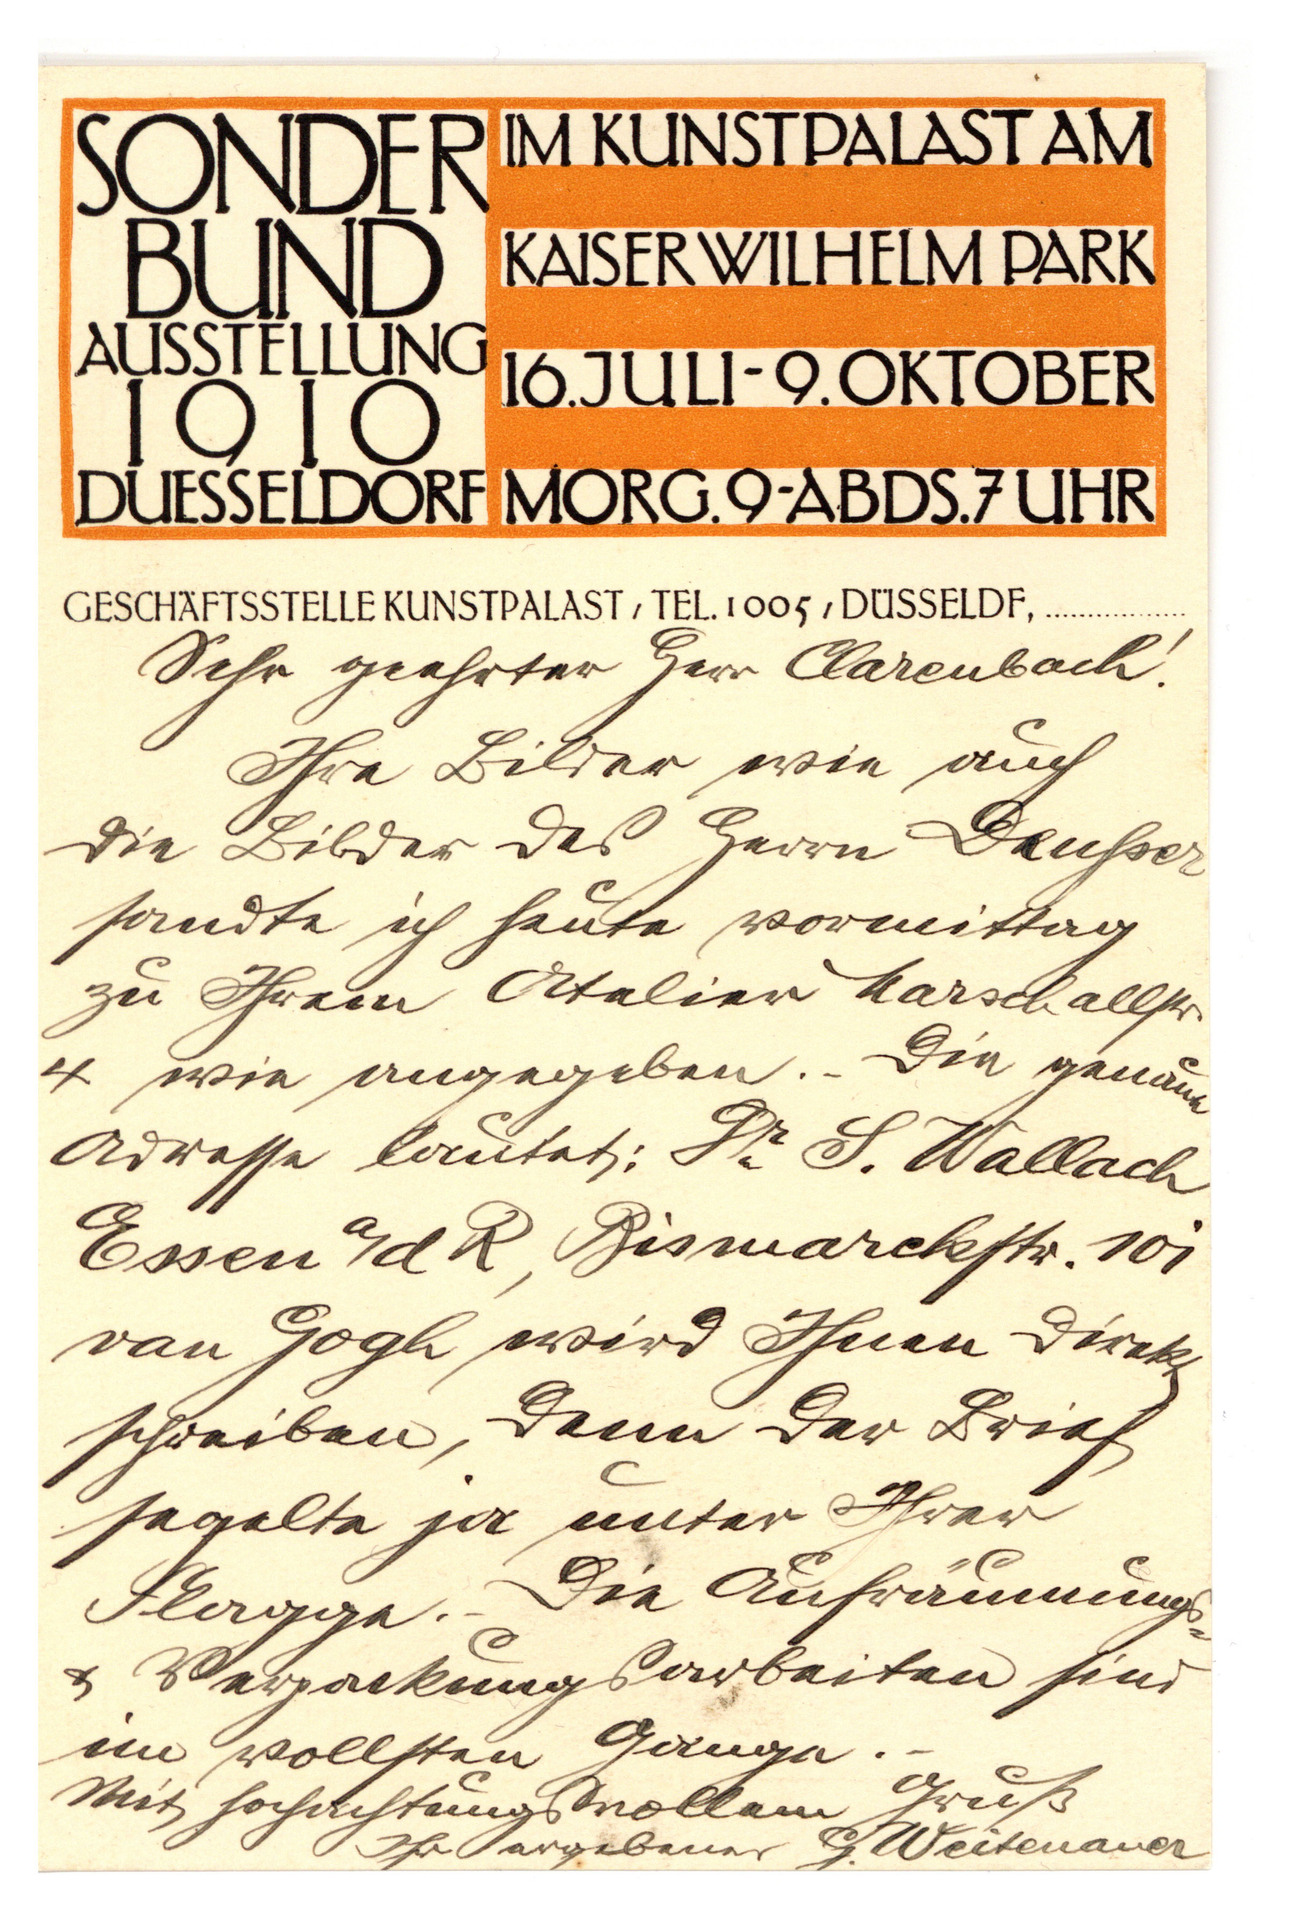 SONDER
BUND
AUSSTELLUNG
1910
DUESSELDORF
IM KUNSTPALAST AM
KAISER WILHELM PARK
16. JULI - 9. OKTOBER
MORG. 9 - ABDS. 7 UHR
GESCHÄFTSSTELLE KUNSTPALAST / TEL. 1005 / DÜSSELDF, ................
Sehr geehrter Herr Clarenbach!
Ihre Bilder wie auch
die Bilder des Herrn Deusser
sandte ich heute vormittag
zu Ihrem Atelier Marschallstr.
4 wie angegeben. – Die genaue
Adresse lautet: Dr. S. Wallach
Essen a/d R, Bismarckstr. 101
van Gogh wird Ihnen direkt
schreiben, denn der Brief
segelte ja unter Ihrer
Flagge. – Die Aufräumungs-
& Verpackungsarbeiten sind
im vollsten Gange. –
Mit hochachtungsvollem Gruß
Ihr ergebener G. Weitenauer